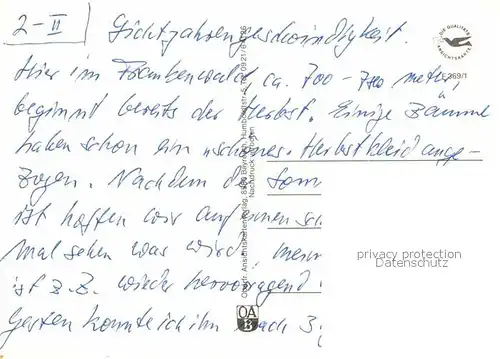 2-II
Lichtjahrengeschwindigkeit.
Hier im Frankenwald ca. 700 - 750 meter,
beginnt bereits der Herbst. Einige Bäume
haben schon ein "schönes" Herbstkleid ange-
zogen. Nachdem de Som
ist hoffen wir auf einen
Mal sehen was wird,
ist z.Z. wieder hervorragend
Gestern konnte ich ihn nach 3
DIE QUALITÄTS
ANSICHTSKARTE
269/1
Oberfr. Ansichtskartenverlag, 8580 Bayreuth
Nachdruck
OA
B
privacy protection
Datenschutz